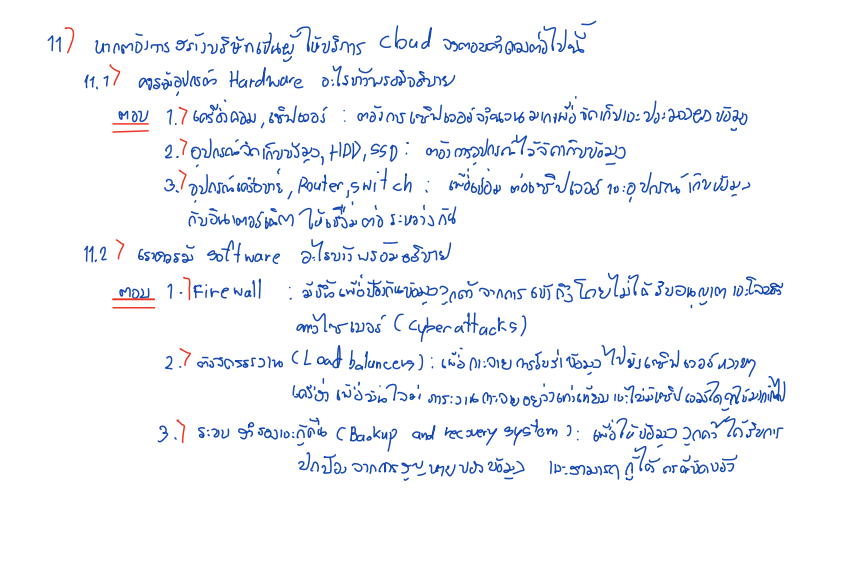 11) หากต้องการสร้างบริษัทเป็นผู้ให้บริการ Cloud จงตอบคำถามต่อไปนี้
11.1) ควรมีอุปกรณ์ Hardware อะไรบ้างพร้อมอธิบาย
ตอบ 1.) เครื่องคอม, เซิฟเวอร์ : ต้องการเซิฟเวอร์จำนวนมากเพื่อจัดเก็บและประมวลผลข้อมูล
2.) อุปกรณ์จัดเก็บข้อมูล, HDD, SSD : ต้องการอุปกรณ์ไว้จัดเก็บข้อมูล
3.) อุปกรณ์เครือข่าย, Router, switch : เพื่อเชื่อมต่อเซิฟเวอร์และอุปกรณ์เก็บข้อมูล
กับอินเตอร์เน็ตให้เชื่อมต่อระหว่างกัน
11.2) เราควรมี software อะไรบ้างพร้อมอธิบาย
ตอบ 1.) Firewall : มีขึ้นเพื่อป้องกันข้อมูลลูกค้าจากการเข้าถึงโดยไม่ได้รับอนุญาตและโจมตี
ทางไซเบอร์ (Cyber attacks)
2.) ตัวจัดการงาน (Load balancers) : เพื่อกระจายการรับส่งข้อมูลไปยังเซิฟเวอร์หลายๆ
เครื่อง เพื่อมั่นใจว่าภาระงานกระจายอย่างเท่าเทียมและไม่มีเซิฟเวอร์ใดถูกใช้มากเกินไป
3.) ระบบสำรองและกู้คืน (Backup and recovery system) : เพื่อให้ข้อมูลลูกค้าได้รับการ
ปกป้องจากการสูญหายของข้อมูล และสามารถกู้ได้กรณีขัดข้อง